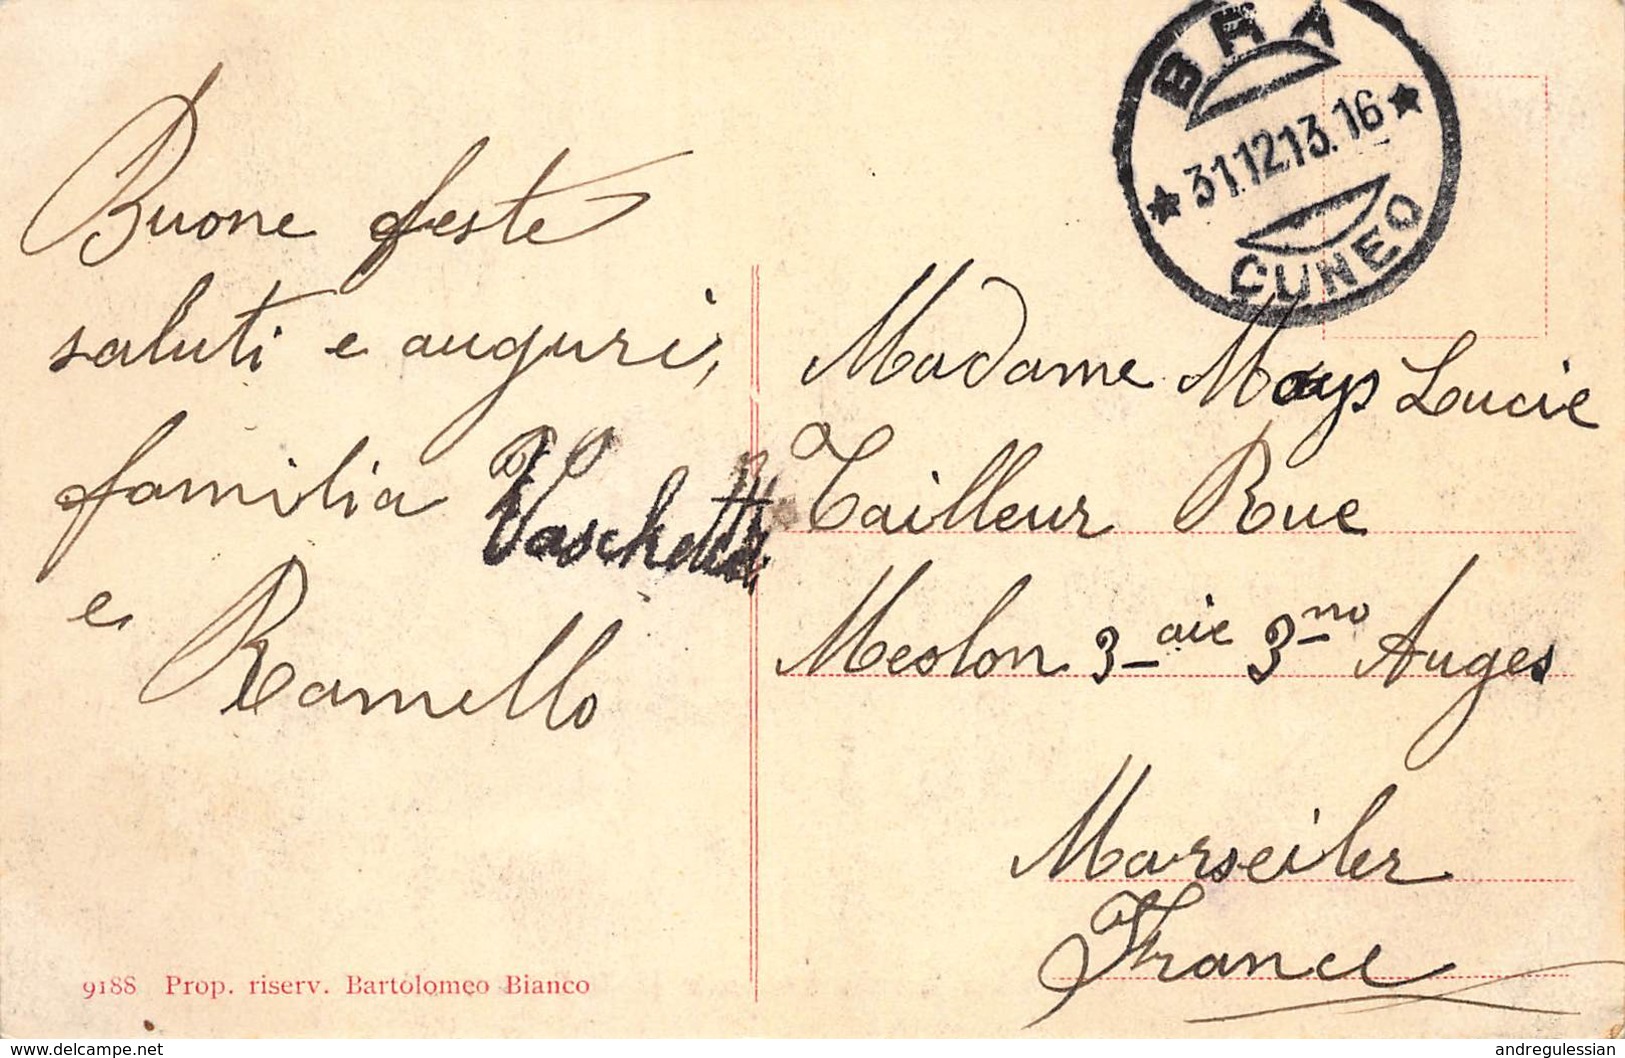 BRA
31.12.13.16
CUNEO
Buone feste
saluti e auguri,
familia Vaschetti
e
Ramello
Madame Mays Lucie
Tailleur Rue
Meolon 3_aie 3_no Auges
Marseiler
France
9188 Prop. riserv. Bartolomeo Bianco
www.delcampe.net
andregulessian